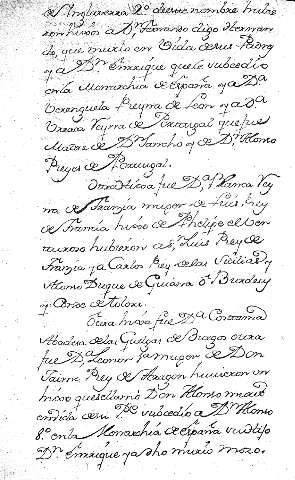 de Inglaterra 2º deeste nombre hubie
ron hixos a Dn. Fernando digo Hernan
do, que murio en Vida desus Padres
y a Dn. Enrrique que le subcedio
enla Monarchia de España y a Da.
Verenguela Reyna de Leon y a Da.
Urraca Reyna de Portugal que fue
Madre de Dn. Sancho y de Dn. Alonso
Reyes de Portugal.
Otra hixa fue Da. Blanca Rey
na de Franzia muger de Luis Rey
de Francia hixo de Phelipe el
hubieron a Sn. Luis Rey de
Franzia y a Carlos Rey de las Sicilias y
Alonso Duque de
de
Otra hixa fue Da. Constanza
Abadesa de las Guelgas de Burgos otra
fue Da. Leonor la muger de Don
Jaime Rey de Aragon huvieron un
hixo que llamó Don Alonso
en vida de su Pe. subcedio a Dn. Alonso
8º enla Monarchia de España su hixo
Dn. Enrrique ya dho murio mozo.